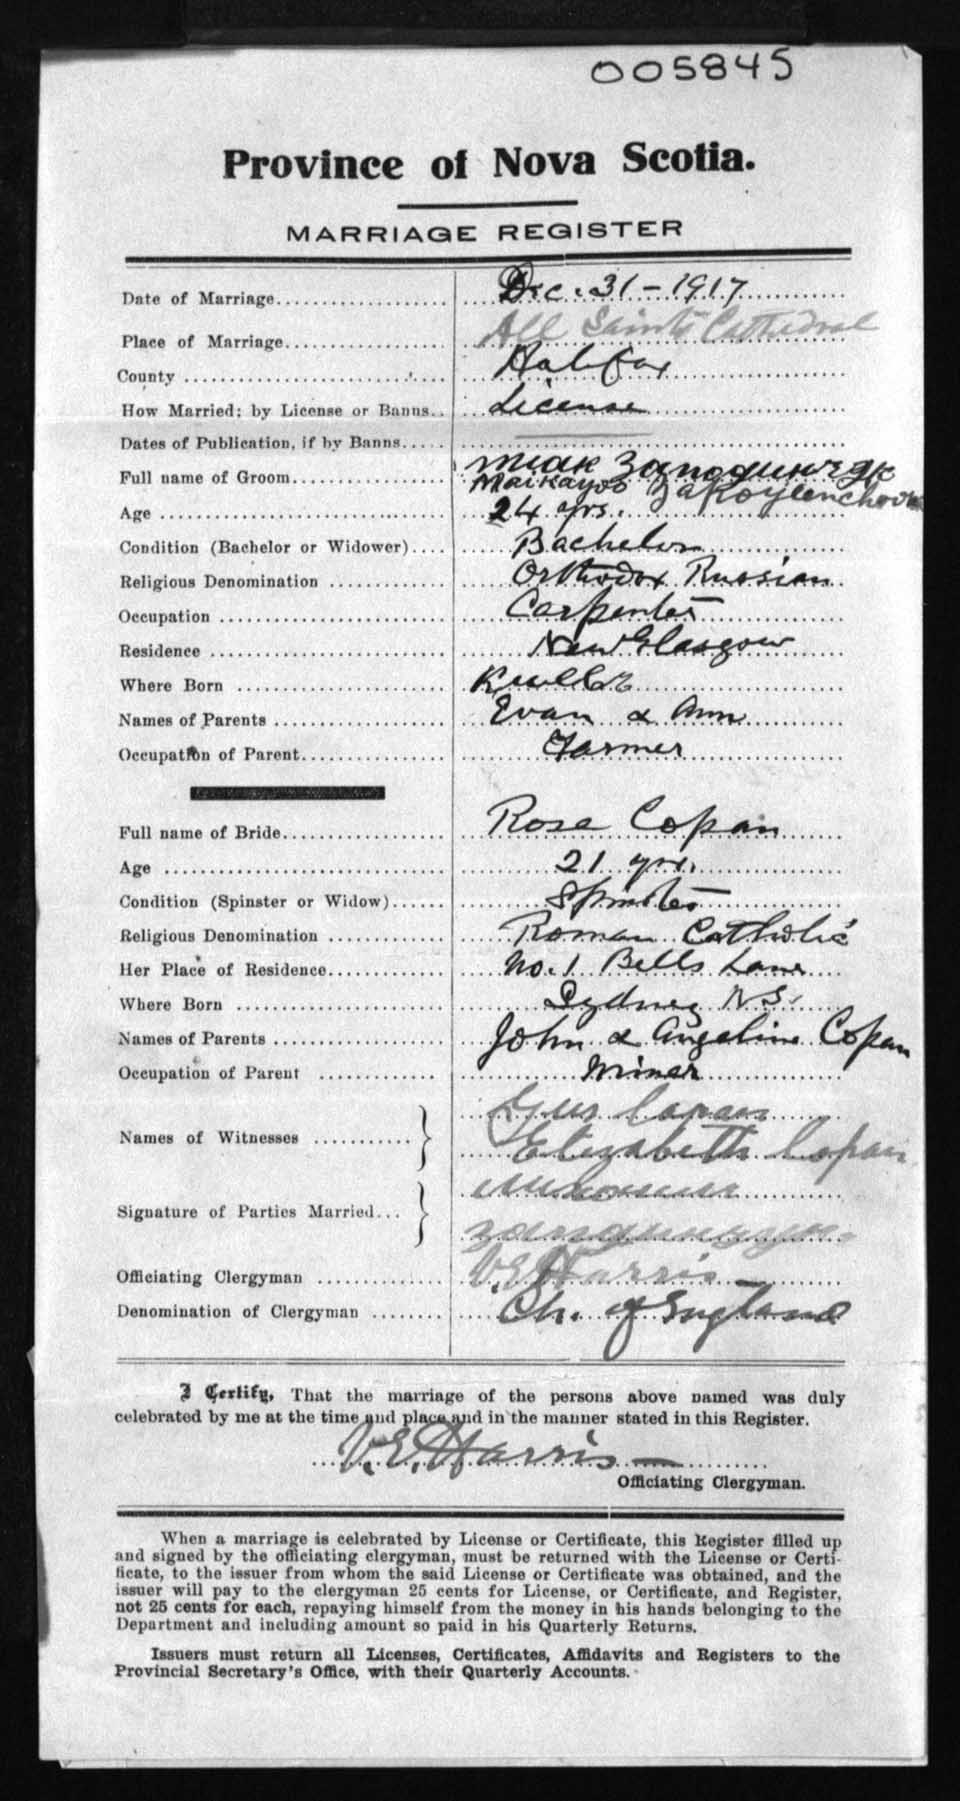 005845
Province of Nova Scotia.
MARRIAGE REGISTER
Date of Marriage Dec. 31 - 1917
Place of Marriage All Saints Cathedral
County Halifax
How Married; by License or Banns License
Dates of Publication, if by Banns
Full name of Groom
Age 24 yrs.
Condition (Bachelor or Widower) Bachelor
Religious Denomination Orthodox Russian
Occupation Carpenter
Residence New Glasgow
Where Born
Names of Parents Evan & Ann
Occupation of Parent Farmer
Full name of Bride Rose Copan
Age 21 yrs.
Condition (Spinster or Widow) Spinster
Religious Denomination Roman Catholic
Her Place of Residence No. 1 Bells Lane
Where Born Sydney N S.
Names of Parents John & Angeline Copan
Occupation of Parent Miner
Names of Witnesses Gus Copan
Elizabeth Copan
Signature of Parties Married
Officiating Clergyman V. E. Harris
Denomination of Clergyman Ch. of England
I Certify, That the marriage of the persons above named was duly
celebrated by me at the time and place and in the manner stated in this Register.
V. E. Harris
Officiating Clergyman.
When a marriage is celebrated by License or Certificate, this Register filled up
and signed by the officiating clergyman, must be returned with the License or Certi-
ficate, to the issuer from whom the said License or Certificate was obtained, and the
issuer will pay to the clergyman 25 cents for License, or Certificate, and Register,
not 25 cents for each, repaying himself from the money in his hands belonging to the
Department and including amount so paid in his Quarterly Returns.
Issuers must return all Licenses, Certificates, Affidavits and Registers to the
Provincial Secretary's Office, with their Quarterly Accounts.